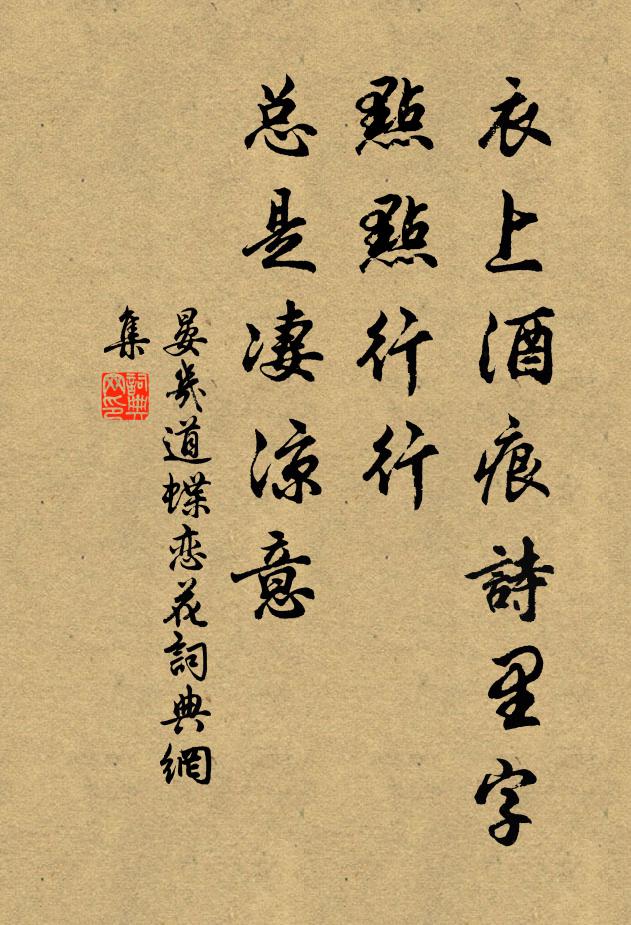 衣上酒痕詩里字
點點行行
总是凄涼意
晏幾道蝶恋花詞典網
集
詞典網印